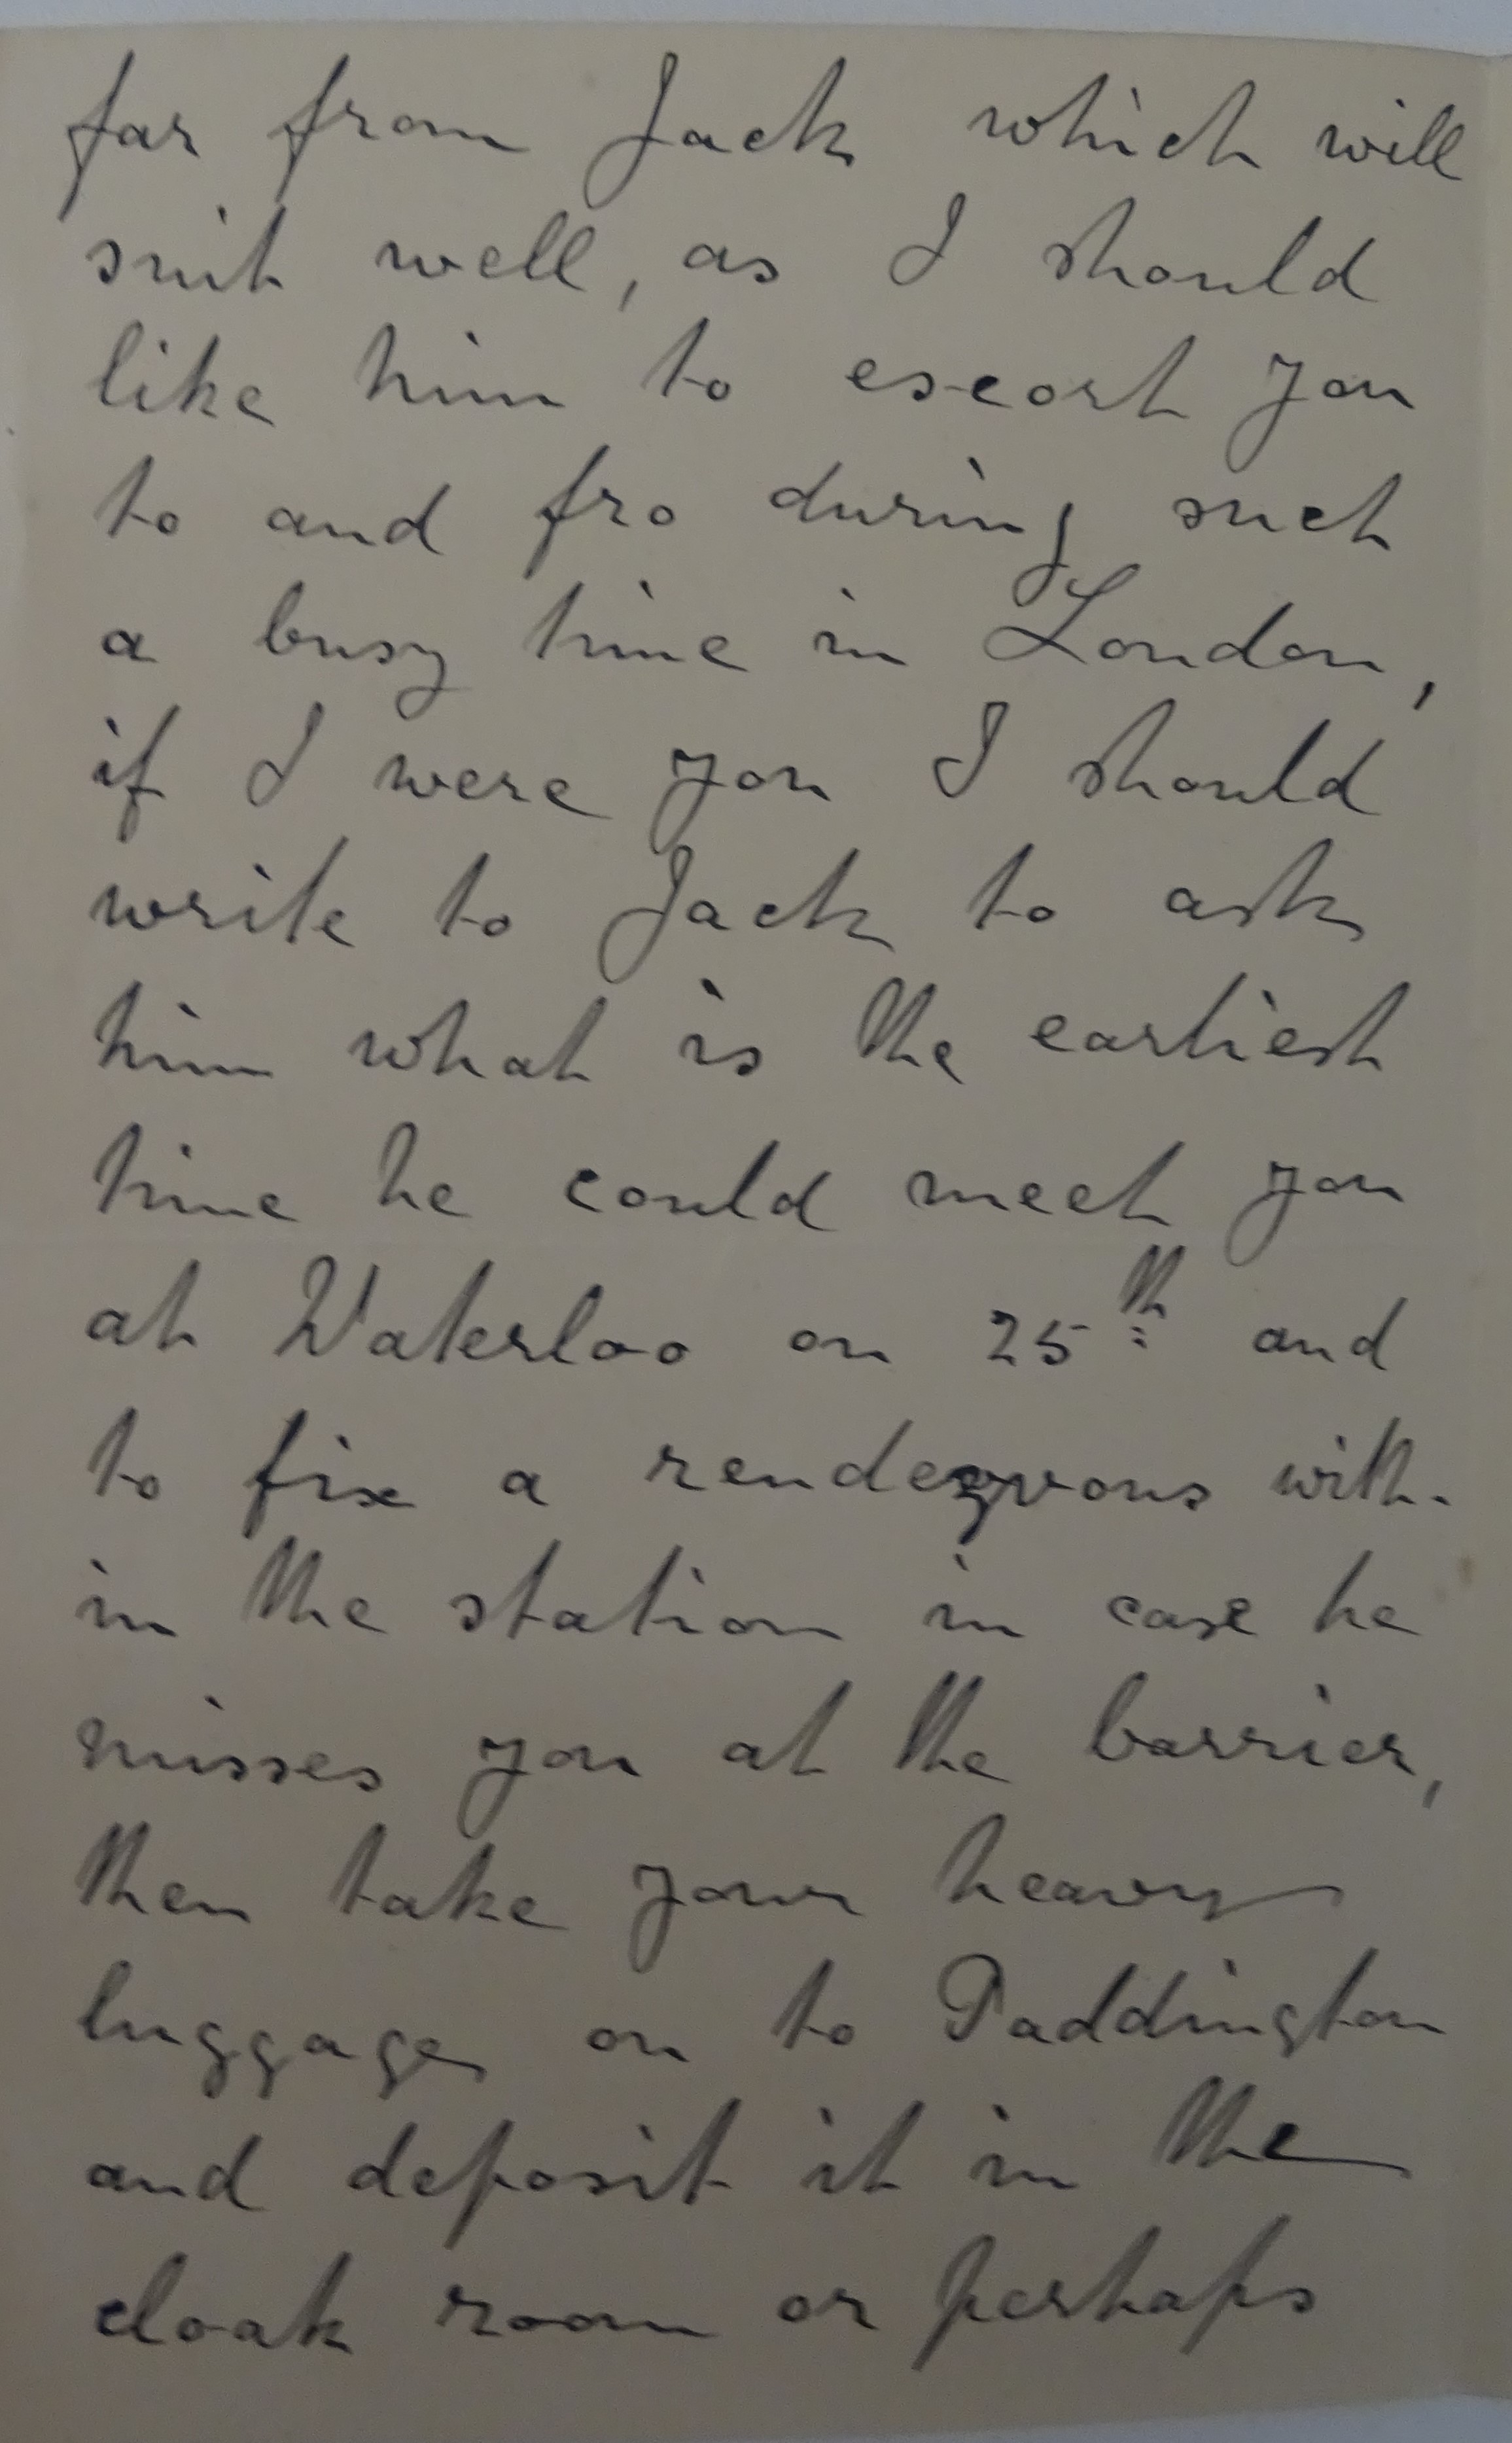 far from Jack which will
suit well, as I should
like him to escort you
to and fro during such
a busy time in London,
if I were you I should
write to Jack to ask
him what is the earliest
time he could meet you
at Waterloo on 25th and
to fix a rendezvous with-
in the station in case he
misses you at the barrier,
then take your heavy
luggage on to Paddington
and deposit it in the
cloak room or perhaps